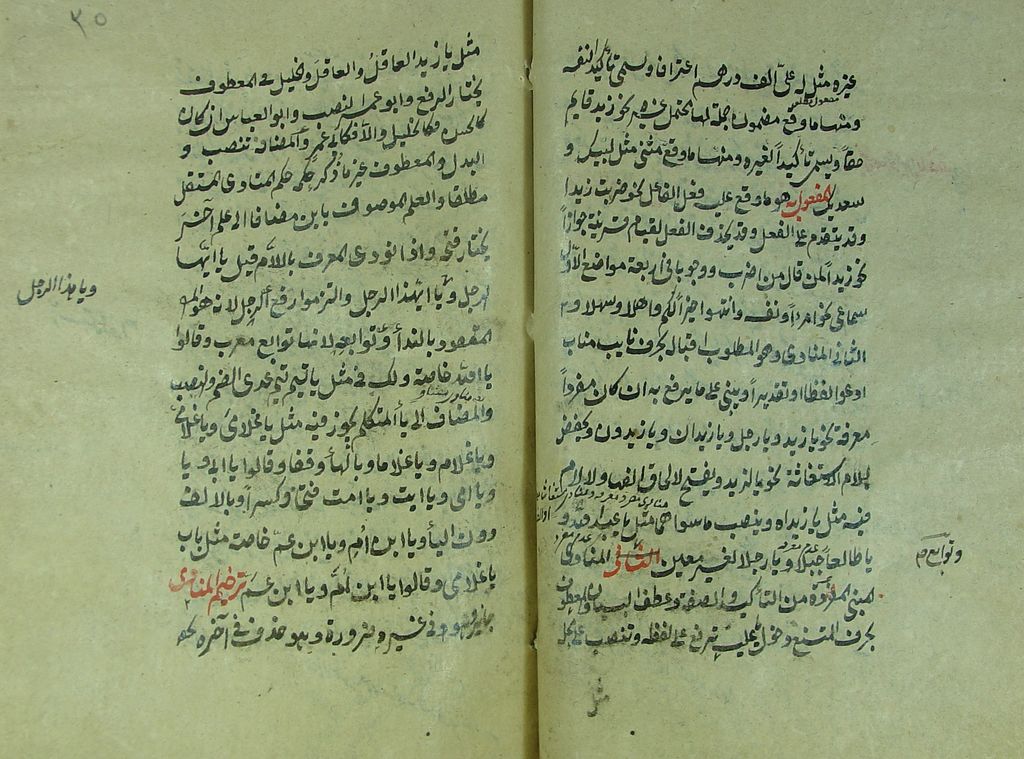 غيره مثل له علىّ الف درهم اعترافا ويسمى تأكيدا لنفسه
مفعول مطلق
ومنها ما وقع مضمون جملة لها محتمل غيره نحو زيد قايم
حقاً ويسمى تأكيداً لغيره ومنها ما وقع مثنى مثل لبيك و
سعديك المفعول به هو ما وقع عليه فعل الفاعل نحو ضربت زيدا
وقد يتقدم على الفعل وقد يحذف الفعل لقيام قرينة جوازاً
نحو زيداً لمن قال من اضرب ووجوبا في أربعة مواضع الأول
سماعي نحو امرءاً ونفسه وانتهوا خيراً لكم واهلا وسهلا و
الثاني المنادى وهو المطلوب اقباله بحرف نايب مناب
ادعو لفظا او تقديراً ويبنى على ما يرفع به ان كان مفرداً
معرفة نحو يا زيد ويا رجل ويا زيدان ويا زيدون ويخفض
بلام الاستغاثة نحو يا لزيد ويفتح لالحاق الفها ولا لام
فيه مثل يا زيداه وينصب ما سواهما مثل يا عبد الله و
يا طالعاً جبلاً ويا رجلا لغير معين الثاني المنادى
وتوابع صح
المبنى المفردة من التأكيد والصفة وعطف البيان والمعطوف
بحرف الممتنع دخول يا عليه ترفع على لفظه وتنصب على محله
مثل
٣٥
مثل يا زيد العاقلُ والعاقلَ والخليل في المعطوف
يختار الرفع وابو عمر النصب وابو العباس ان كان
كالحسن فكالخليل والا فكابي عمر والمضافة تنصب و
البدل والمعطوف غير ما ذكر حكمه حكم المنادى المستقل
مطلقا والعلم الموصوف بابن مضافا الى علم آخر
يختار فتحه واذا نودى المعرف باللام قيل يا ايها
الرجل ويا ايهذا الرجل والتزموا رفع الرجل لانه هو
ويا هذا الرجل
المقصود بالندأ وتوابعه لانها توابع معرب وقالوا
يا الله خاصة ولك في مثل يا تيم تيم عدى الضم والنصب
والمضاف الى يأ المتكلم يجوز فيه مثل يا غلامى ويا غلامىَ
ويا غلام ويا غلاما وبالهأ وقفا وقالوا يا ابى ويا
ويا امى ويا ابت ويا امت فتحاً وكسراً وبالالف
دون اليأ ويا ابن ام ويا ابن عم خاصة مثل باب
يا غلامى وقالوا يا ابن اُمَّ ويا ابن عمَّ ترخيم المنادى
جايز وهو في غيره ضرورة وهو حذف في آخره